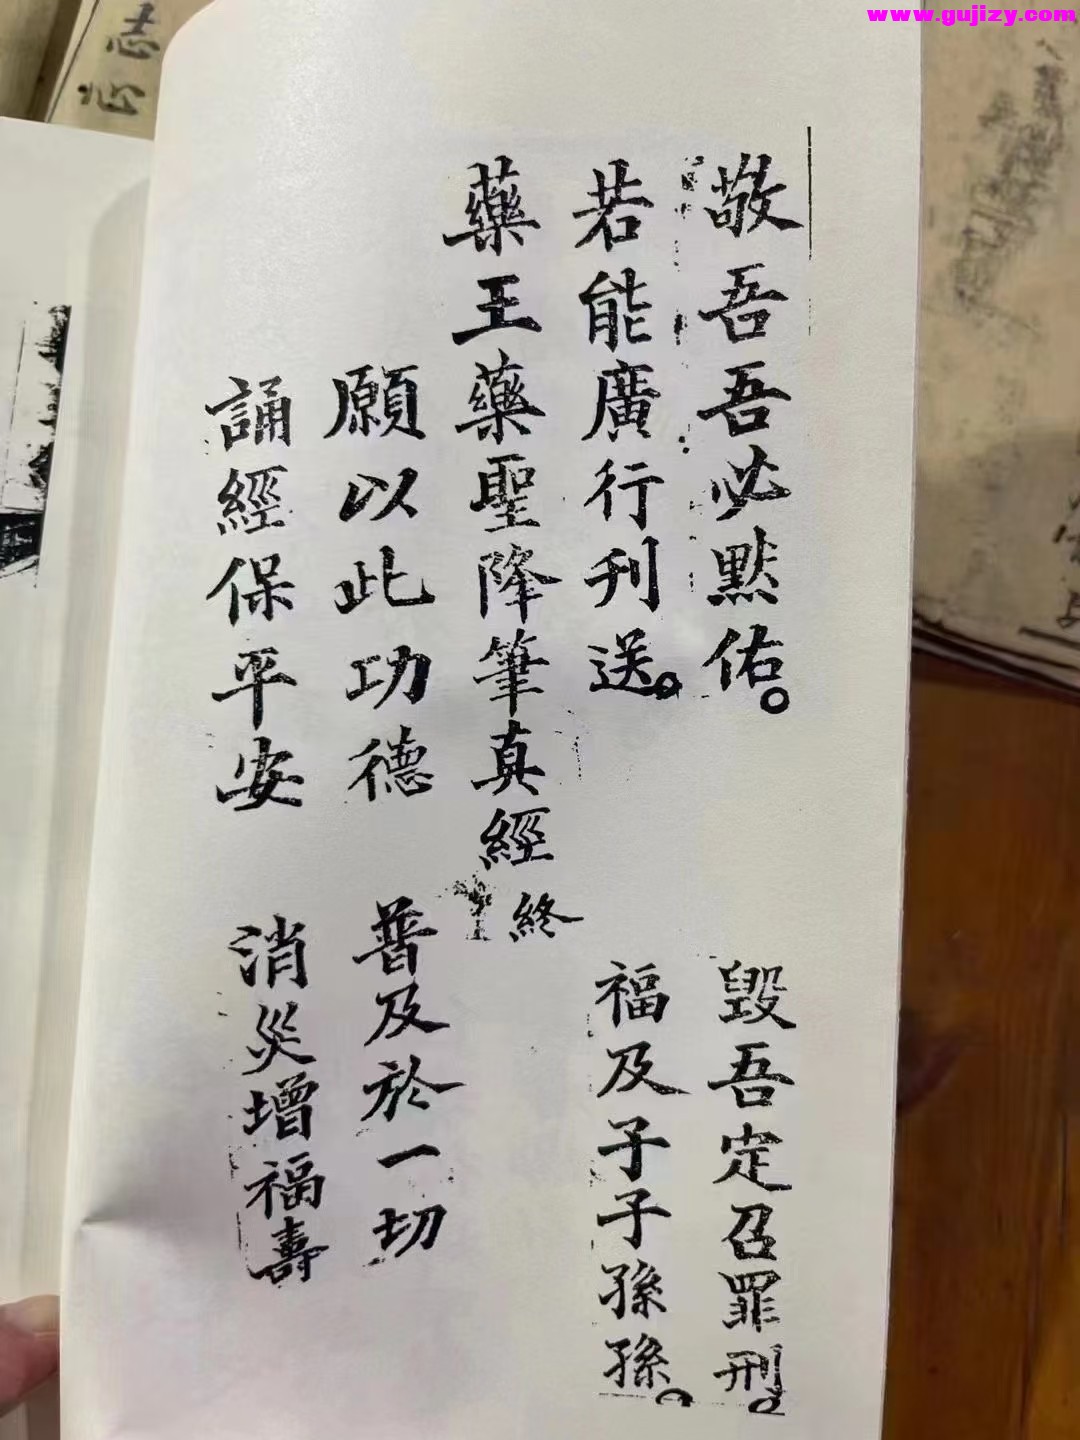 www.gujizy.com
敬吾吾必默佑。 毀吾定召罪刑。
若能廣行刊送。 福及子子孫孫。
藥王藥聖降筆真經 終
願以此功德 普及於一切
誦經保平安 消災增福壽